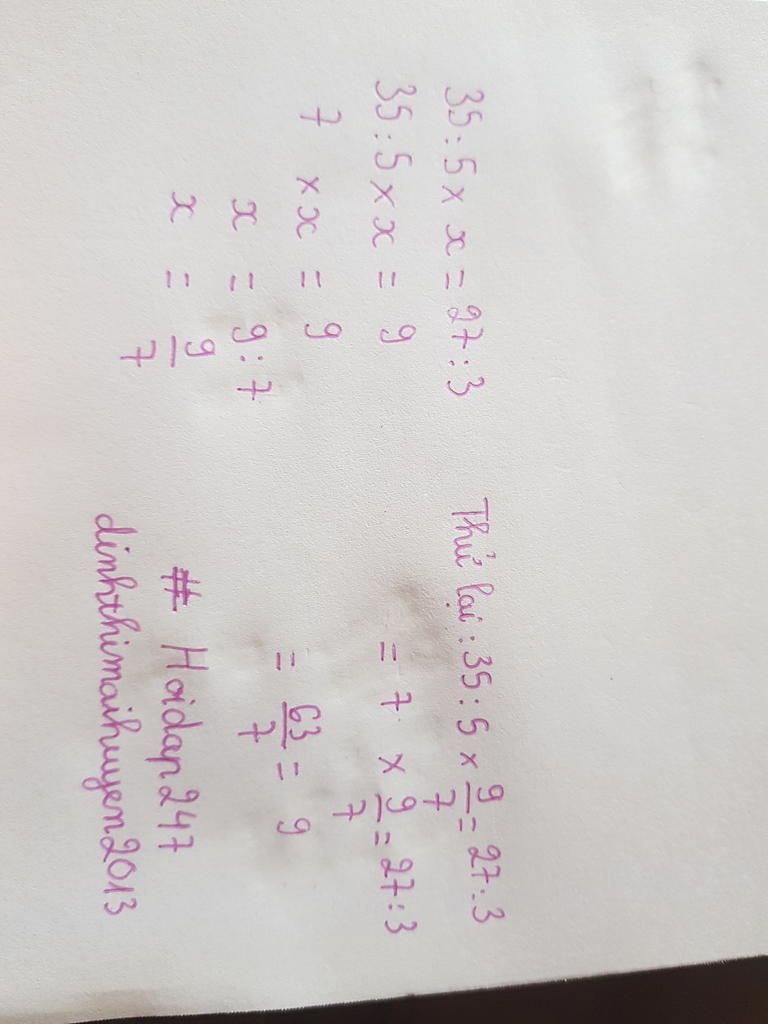 35 : 5 × x = 27 : 3
35 : 5 × x = 9
7 × x = 9
x = 9 : 7
x = 9/7
Thử lại : 35 : 5 × 9/7 = 27 : 3
= 7 × 9/7 = 27 : 3
= 63/7 = 9
# Hoidap247
dinhthimaihuyen2013